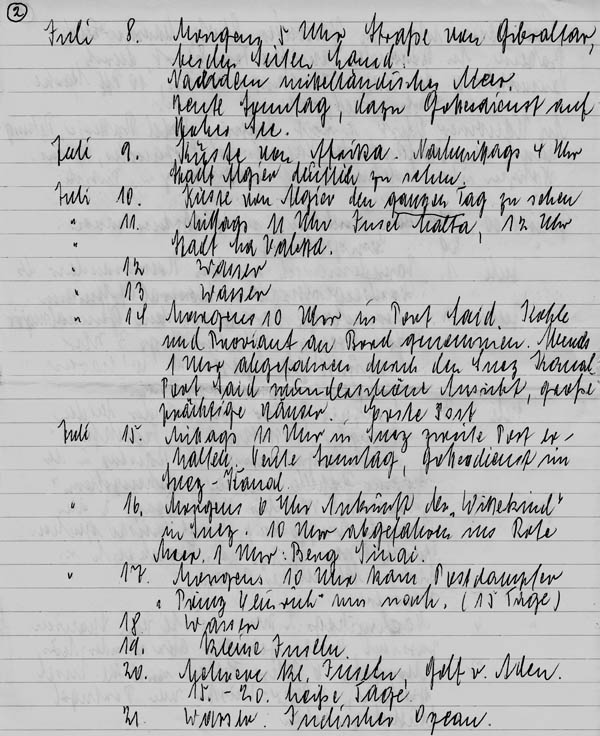 2
Juli 8. Morgens 5 Uhr Straße von Gibraltar,
beiden Seiten Land.
Nachdem mittelländisches Meer.
Heute Sonntag, dazu Gottesdienst auf
hoher See.
Juli 9. Küste von Afrika. Nachmittags 4 Uhr
Stadt Algier deutlich zu sehen.
Juli 10. Küste von Algier den ganzen Tag zu sehen
" 11. Mittags 11 Uhr Insel Malta, 12 Uhr
" Stadt La Valetta.
" 12 Wasser
" 13 Wasser
" 14 Morgens 10 Uhr in Port Said. Kohle
und Proviant an Bord genommen. Abends
1 Uhr abgefahren durch den Suez Kanal
Port Said wunderschöne Ansicht, große
prächtige Häuser. Erste Post
Juli 15. Mittags 11 Uhr in Suez zweite Post er-
halten. Heute Sonntag, Gottesdienst im
Suez-Kanal.
" 16. Morgens 6 Uhr Ankunft der „Wittekind"
in Suez. 10 Uhr abgefahren ins Rote
Meer. 1 Uhr: Berg Sinai.
" 17. Morgens 10 Uhr kam Postdampfer
„Prinz Heinrich" uns nach. (15 Tage)
18 Wasser
19. Kleine Inseln.
20. Mehrere kl. Inseln, Golf v. Aden.
15.-20. heiße Tage
21. Wasser. Indischer Ozean.